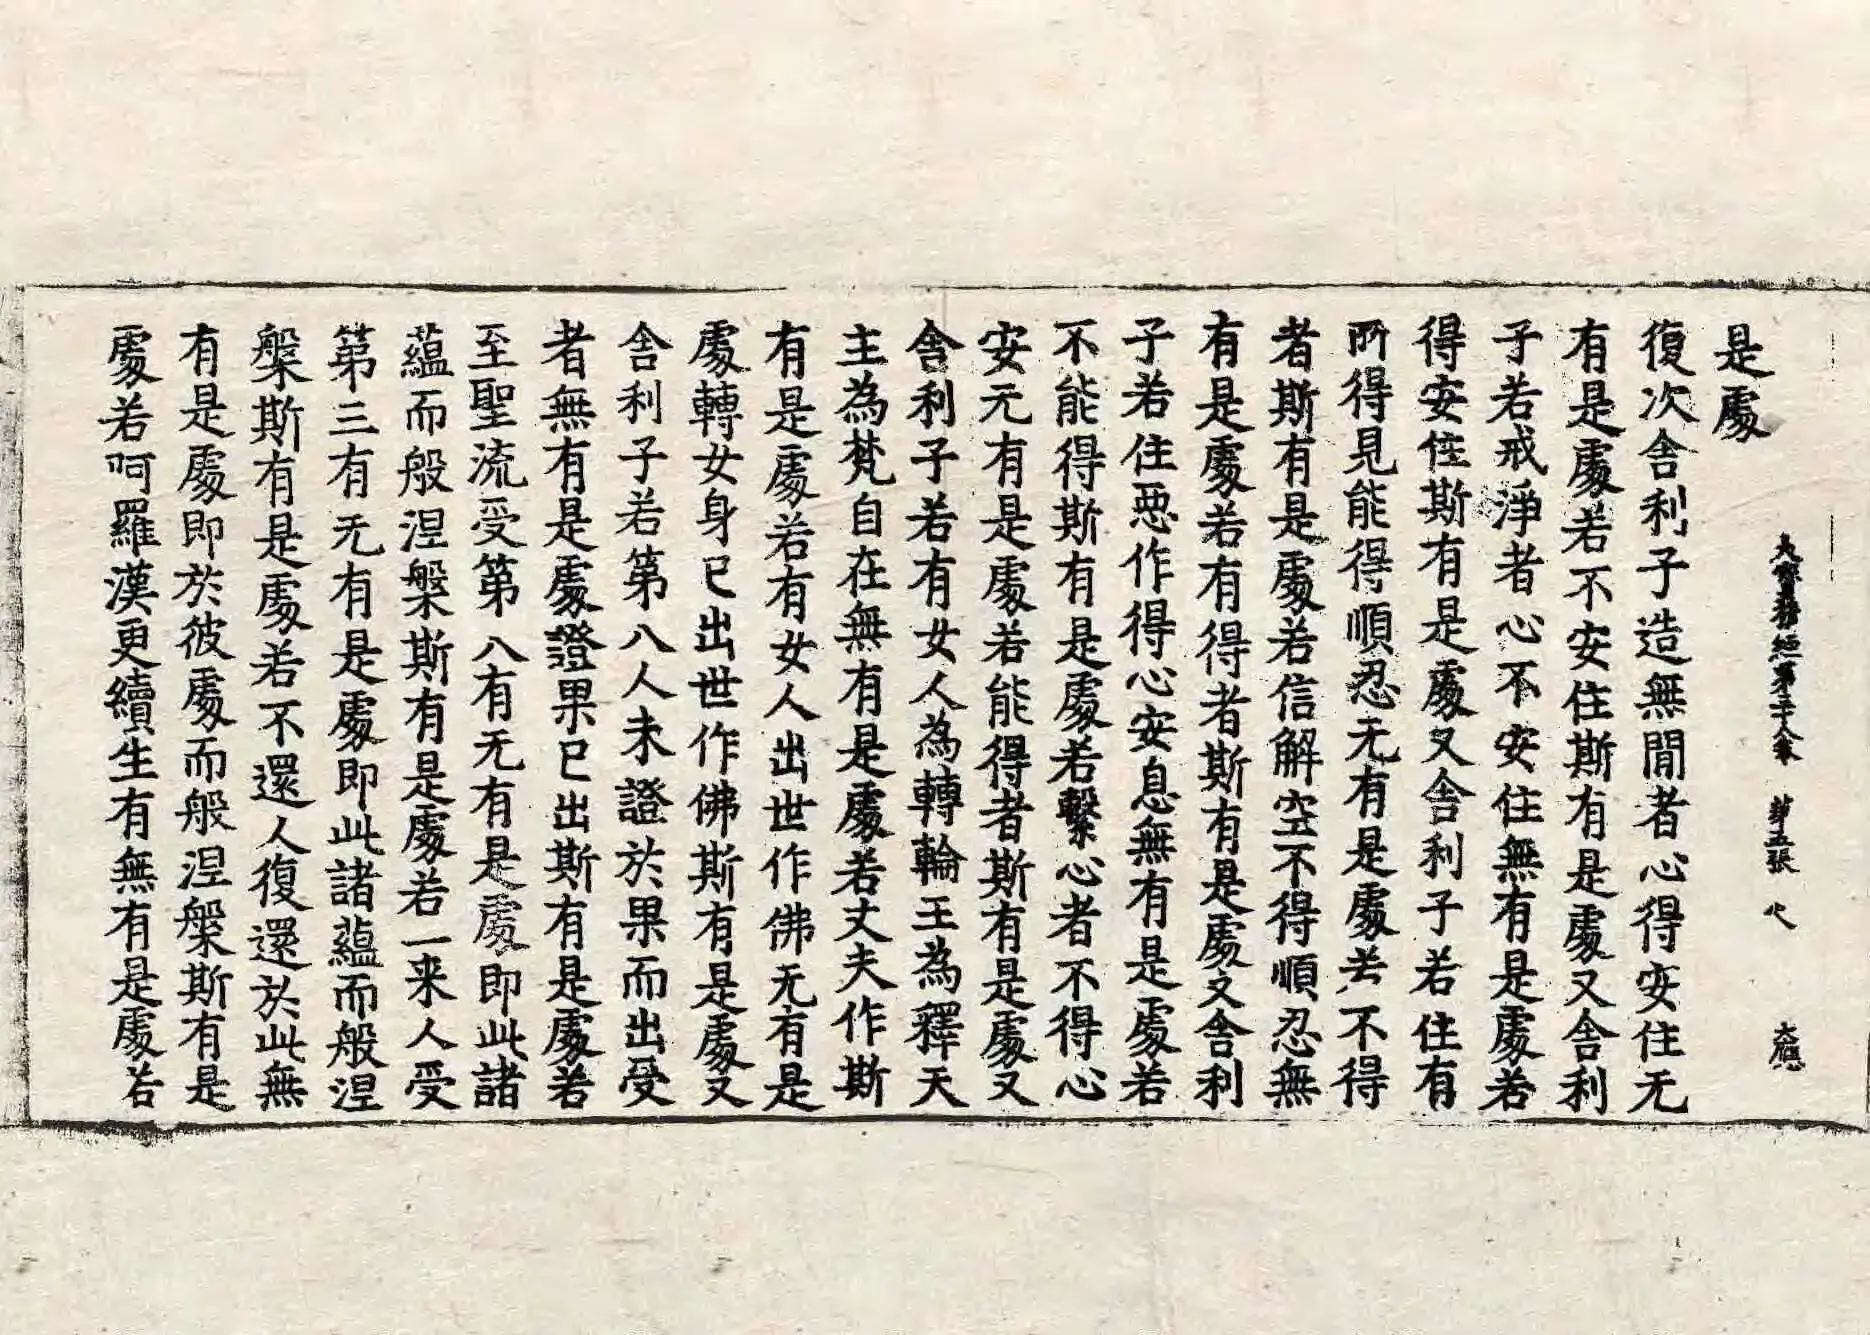 大寶積經第三十八卷 第五張 乆 大應
是處
復次舍利子造無間者心得安住无
有是處若不安住斯有是處又舍利
子若戒淨者心不安住無有是處若
得安住斯有是處又舍利子若住有
所得見能得順忍无有是處若不得
者斯有是處若信解空不得順忍無
有是處若有得者斯有是處又舍利
子若住惡作得心安息無有是處若
不能得斯有是處若繫心者不得心
安无有是處若能得者斯有是處又
舍利子若有女人為轉輪王為釋天
主為梵自在無有是處若丈夫作斯
有是處若有女人出世作佛无有是
處轉女身已出世作佛斯有是處又
舍利子若第八人未證於果而出受
者無有是處證果已出斯有是處若
至聖流受第八有无有是處即此諸
蘊而般涅槃斯有是處若一来人受
第三有无有是處即此諸蘊而般涅
槃斯有是處若不還人復還於此無
有是處即於彼處而般涅槃斯有是
處若呵羅漢更續生有無有是處若